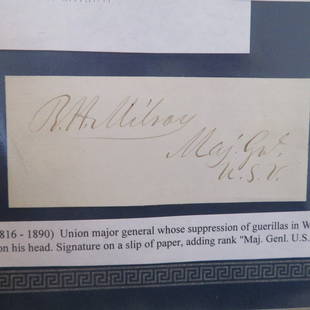 R.H. Milroy
Maj. Genl.
U.S.V.
816 - 1890) Union major general whose suppression of guerillas in W
on his head. Signature on a slip of paper, adding rank "Maj. Genl. U.S.